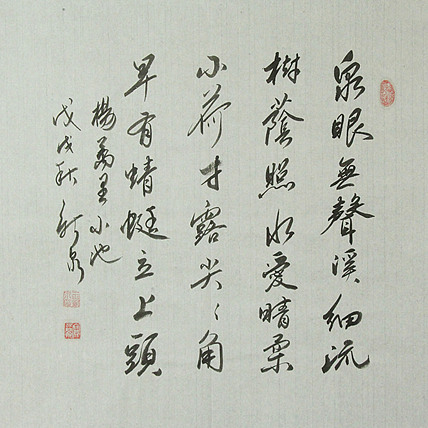 泉眼無聲溪細流
樹蔭照水愛晴柔
小荷才露尖々角
早有蜻蜓立上頭
楊萬里小池
戊戌秋